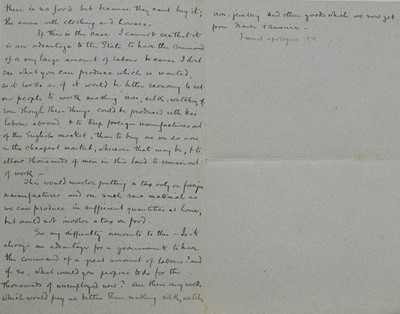 there is no food but because they cant buy it;
the same with clothing and houses.
If this is the case I cannot see that it
is an advantage to the State to have the command
of a very large amount of labour because I dont
see what you can produce which is wanted,
so it looks as if it would be better economy to set
our people to work making iron, silk, watches, &
even though these things could be produced with less
labour abroad & to keep foreign manufactures out
of the English market, than to buy as we do now
in the cheapest market, wherever that may be, & to
allow thousands of men in this land to remain out
of work —
This would involve putting a tax only on foreign
manufactures and on such raw material as
we can produce in sufficient quantities at home,
but would not involve a tax on food.
So my difficulty amounts to this — Is it
always an advantage for a government to have
the command of a great amount of labour? and
if so, what would you propose to do for the
thousands of unemployed now? Are there any works
which would pay us better than making silk, watches
iron, jewelry and other goods which we now get
from France & America —
I must apologise